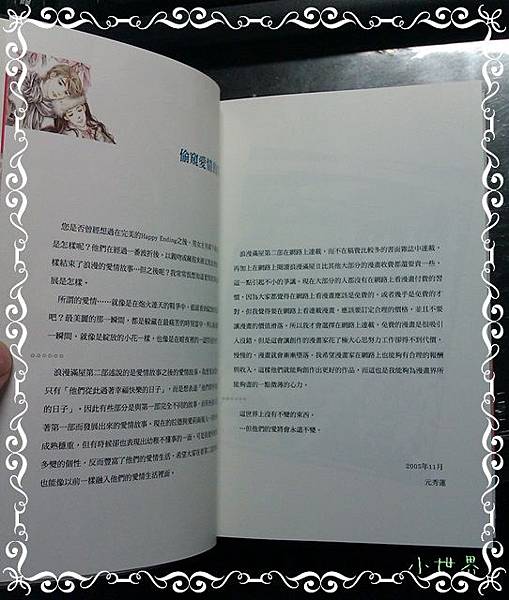 偷窺愛情的
您是否曾經想過在完美的Happy Ending之後，男女主角
是怎樣呢？他們在經過一番波折後，以
樣結束了浪漫的愛情故事…但之後呢？我常常
展是怎樣。
所謂的愛情……就像是在炮火連天的戰爭中，
吧？最美麗的那一瞬間，都是躲藏在最痛苦的時
一瞬間，就像是綻放的小花一樣，也像是在暗夜裡的
……
浪漫滿屋第二部述說的是愛情故事之後的愛情故事，
只有「他們從此過著幸福快樂的日子」，而是想表達「他們
的日子」，因此有些部分是與第一部完全不同的故事，
著第一部而發展出來的愛情故事，現在的
成熟穩重，但有時候卻也表現出幼稚不懂事的一面，可是
多變的個性，反而豐富了他們的愛情生活，希望大家
也能像以前一樣融入他們的愛情生活裡面。
浪漫滿屋第二部在網路上連載，而不在稿費比較多的書面雜誌中連載，
再加上在網路上閱讀浪漫滿屋Ⅱ比其他大部分的漫畫收費都還要貴一些，
這一點引起不小的爭議。現在大部分的人都沒有在網路上看漫畫付費的習
慣，因為大家都覺得在網路上看漫畫應該是免費的，或者幾乎是免費的才
對，但我覺得要在網路上看連載漫畫，應該要訂定合理的價格，並且不要
讓漫畫的價值滑落，所以我才會選擇在網路上連載。免費的漫畫是很吸引
人沒錯，但是這會讓創作的漫畫家花了極大心思努力工作卻得不到代價，
慢慢的，漫畫就會漸漸墮落，我希望漫畫家在網路上也能夠有合理的報酬
與收入，這樣他們就能夠創作出更好的作品，而這也是我能夠為漫畫界所
能夠盡的一點微薄的心力。
……
這世界上沒有不變的東西，
…但他們的愛將會永遠不變。
2005年11月
元秀蓮
小世界